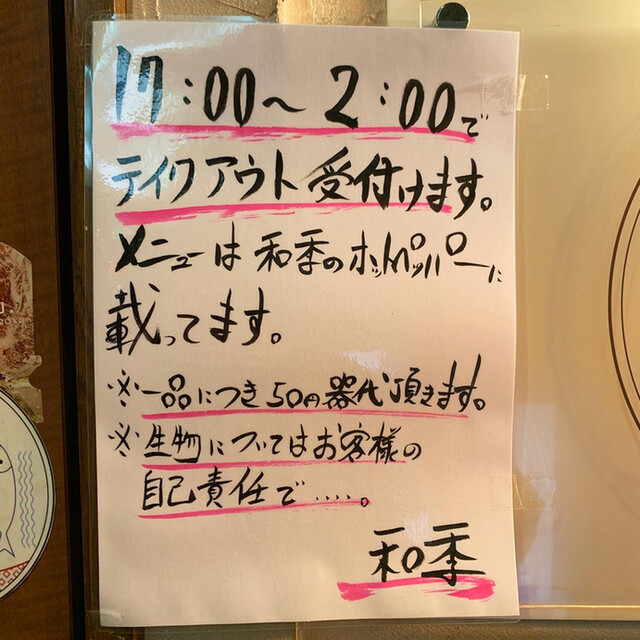 17:00〜2:00で
テイクアウト受付けます。
メニューは和季のホットペッパーに
載ってます。
※一品につき50円器代頂きます。
※生物についてはお客様の
自己責任で……。
和季